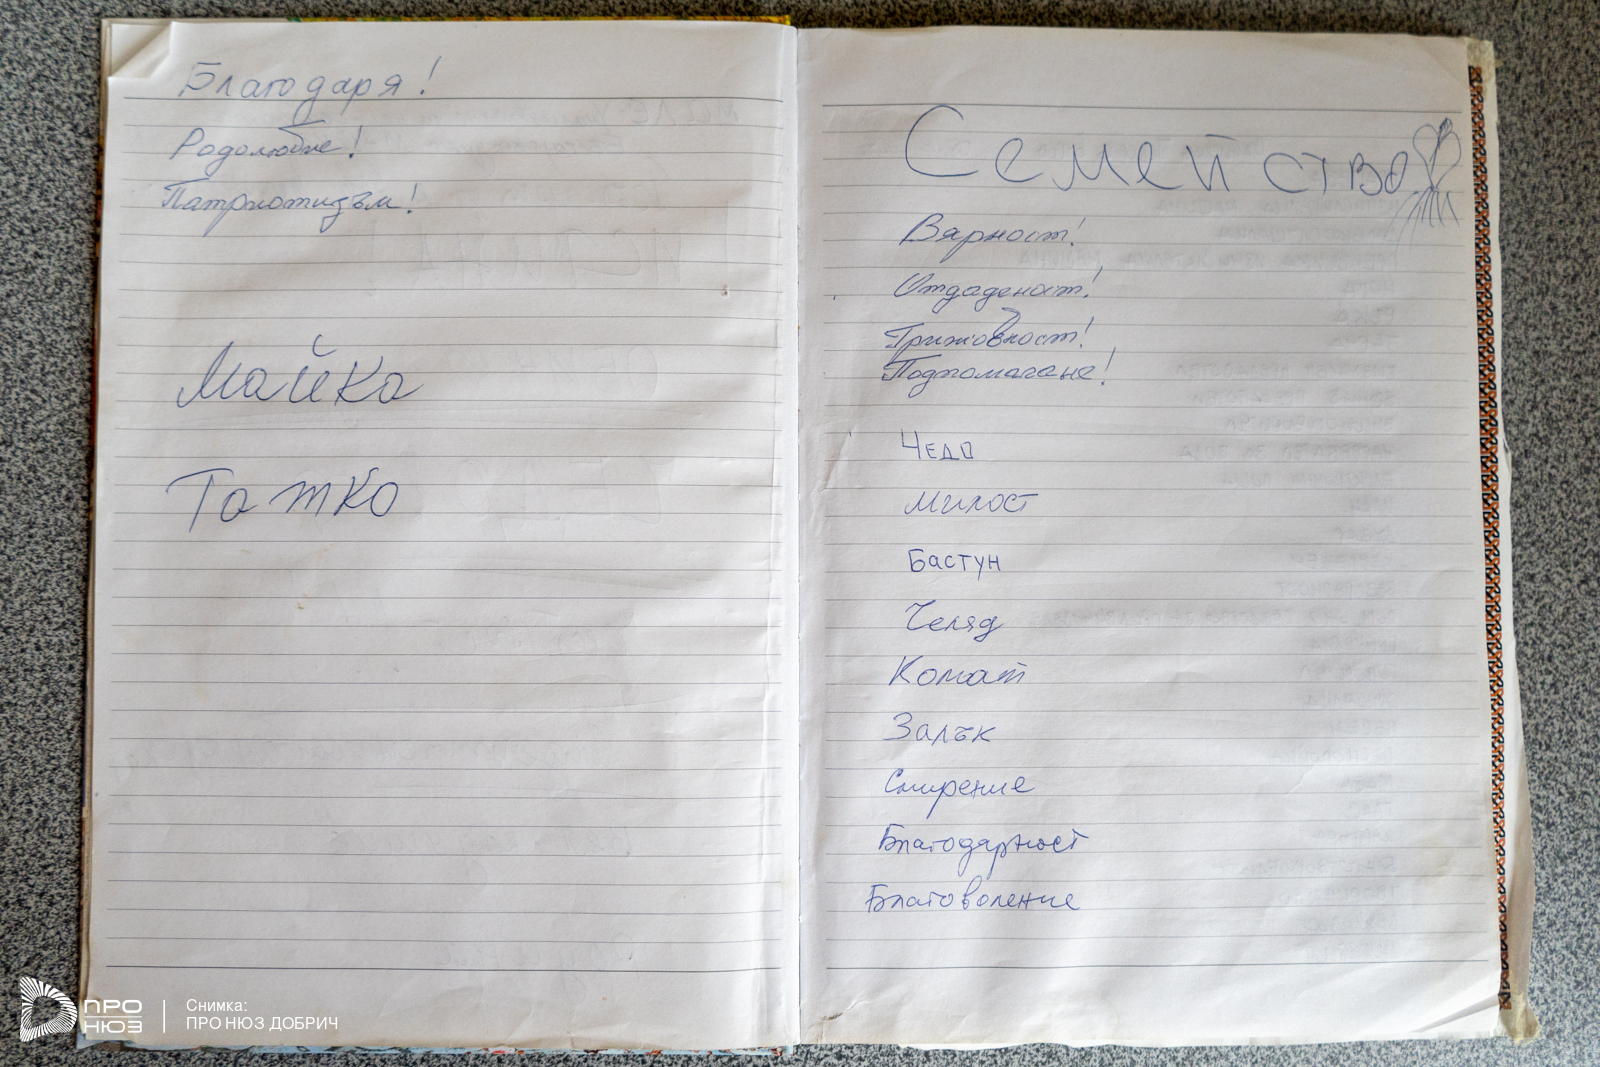 Благодаря!
Родолюбие!
Патриотизъм!
Майка
Татко
Семейство
Вярност!
Отдаденост!
Грижовност!
Подпомагане!
Чедо
Милост
Бастун
Челяд
Комат
Залък
Смирение
Благодарност
Благоволение
ПРО НЮЗ
Снимка:
ПРО НЮЗ ДОБРИЧ